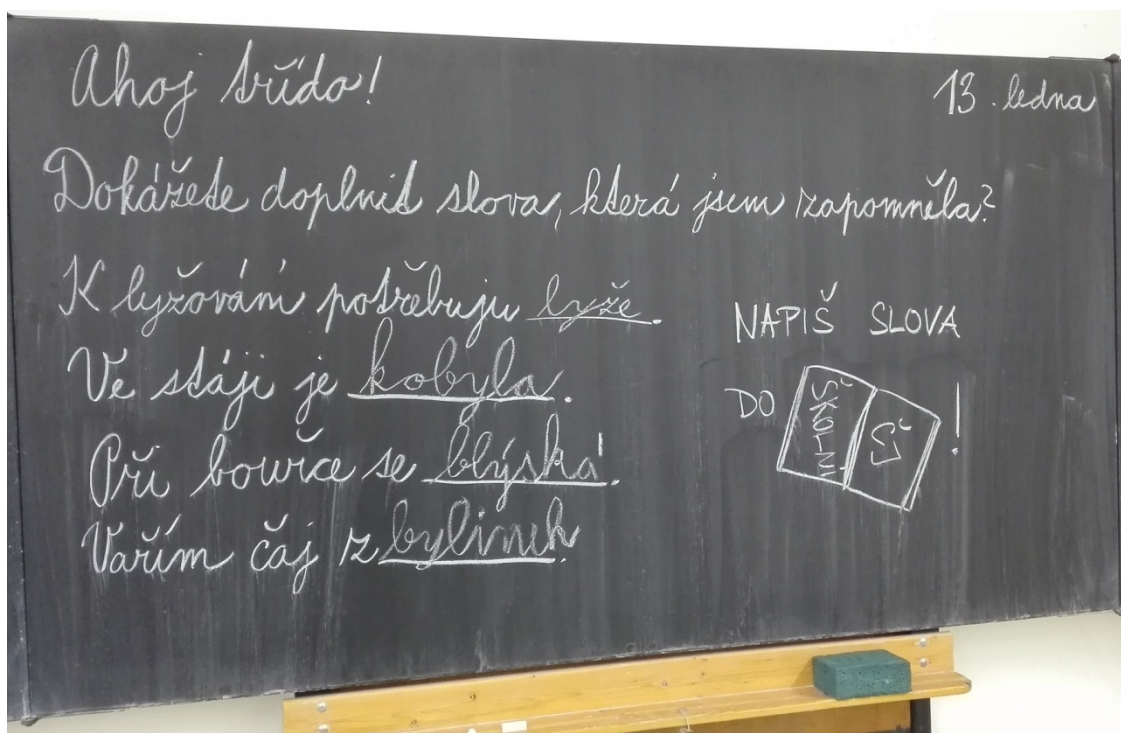 Ahoj třído!
13. ledna
Dokážete doplnit slova, která jsem zapomněla?
K lyžování potřebuju lyže.
Ve stáji je kobyla.
Při bouřce se blýská.
Vařím čaj z bylinek.
NAPIŠ SLOVA
DO ŠKOLNÍ ČJ!